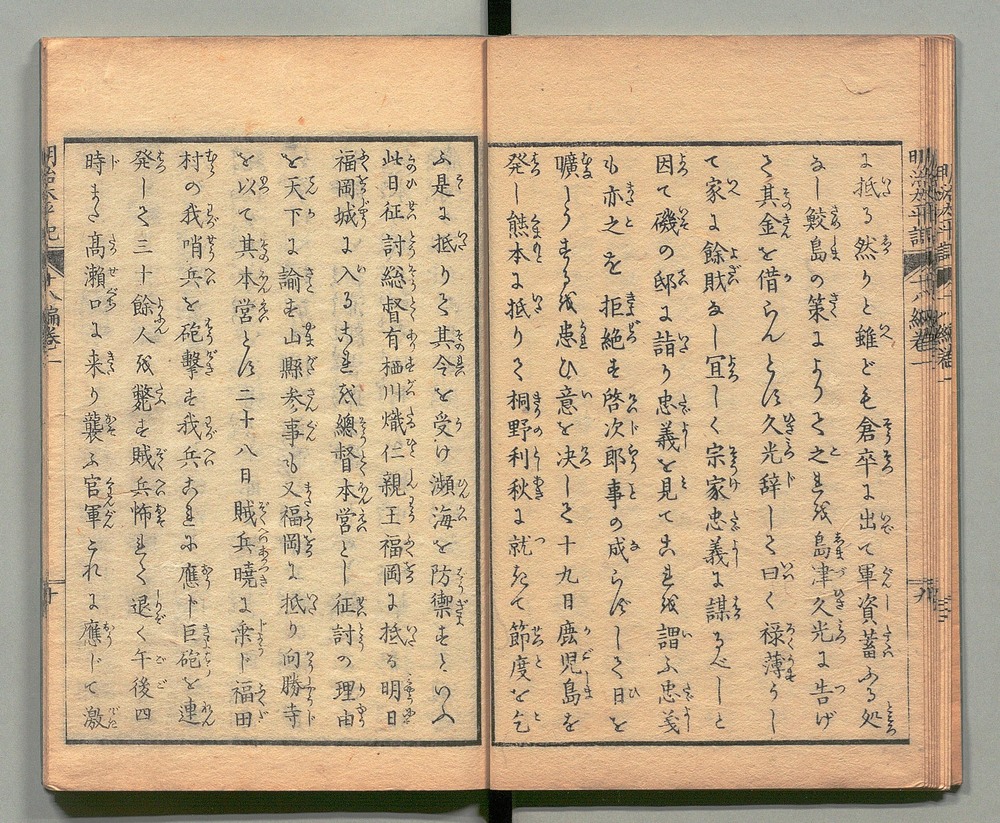 に抵る然りと雖ども倉卒に出て軍資蓄ふる処
なし鮫島の策によりて之を島津久光に告げ
て其金を借らんとす久光辞して曰く禄薄うし
て家に餘財なし宜しく宗家忠義に謀るべしと
因て磯の邸に詣り忠義を見て之を謂ふ忠義
も亦之を拒絶す啓次郎事の成らずして日を
曠しうするを患ひ意を决して十九日鹿児島を
発し熊本に抵りて桐野利秋に就きて節度を乞
明治太平記
十八編巻一
十
ふ是に抵りて其令を受け瀕海を防禦すといふ
此日征討総督有栖川熾仁親王福岡に抵る明日
福岡城に入るこれを總督本営とし征討の理由
を天下に諭す山縣参事も又福岡に抵り向勝寺
を以て其本営とす二十八日賊兵曉に乗じ福田
村の我哨兵を砲撃す我兵これに應ト巨砲を連
発して三十餘人を斃す賊兵怖れて退く午後四
時また高瀬口に来り襲ふ官軍これに應じて激